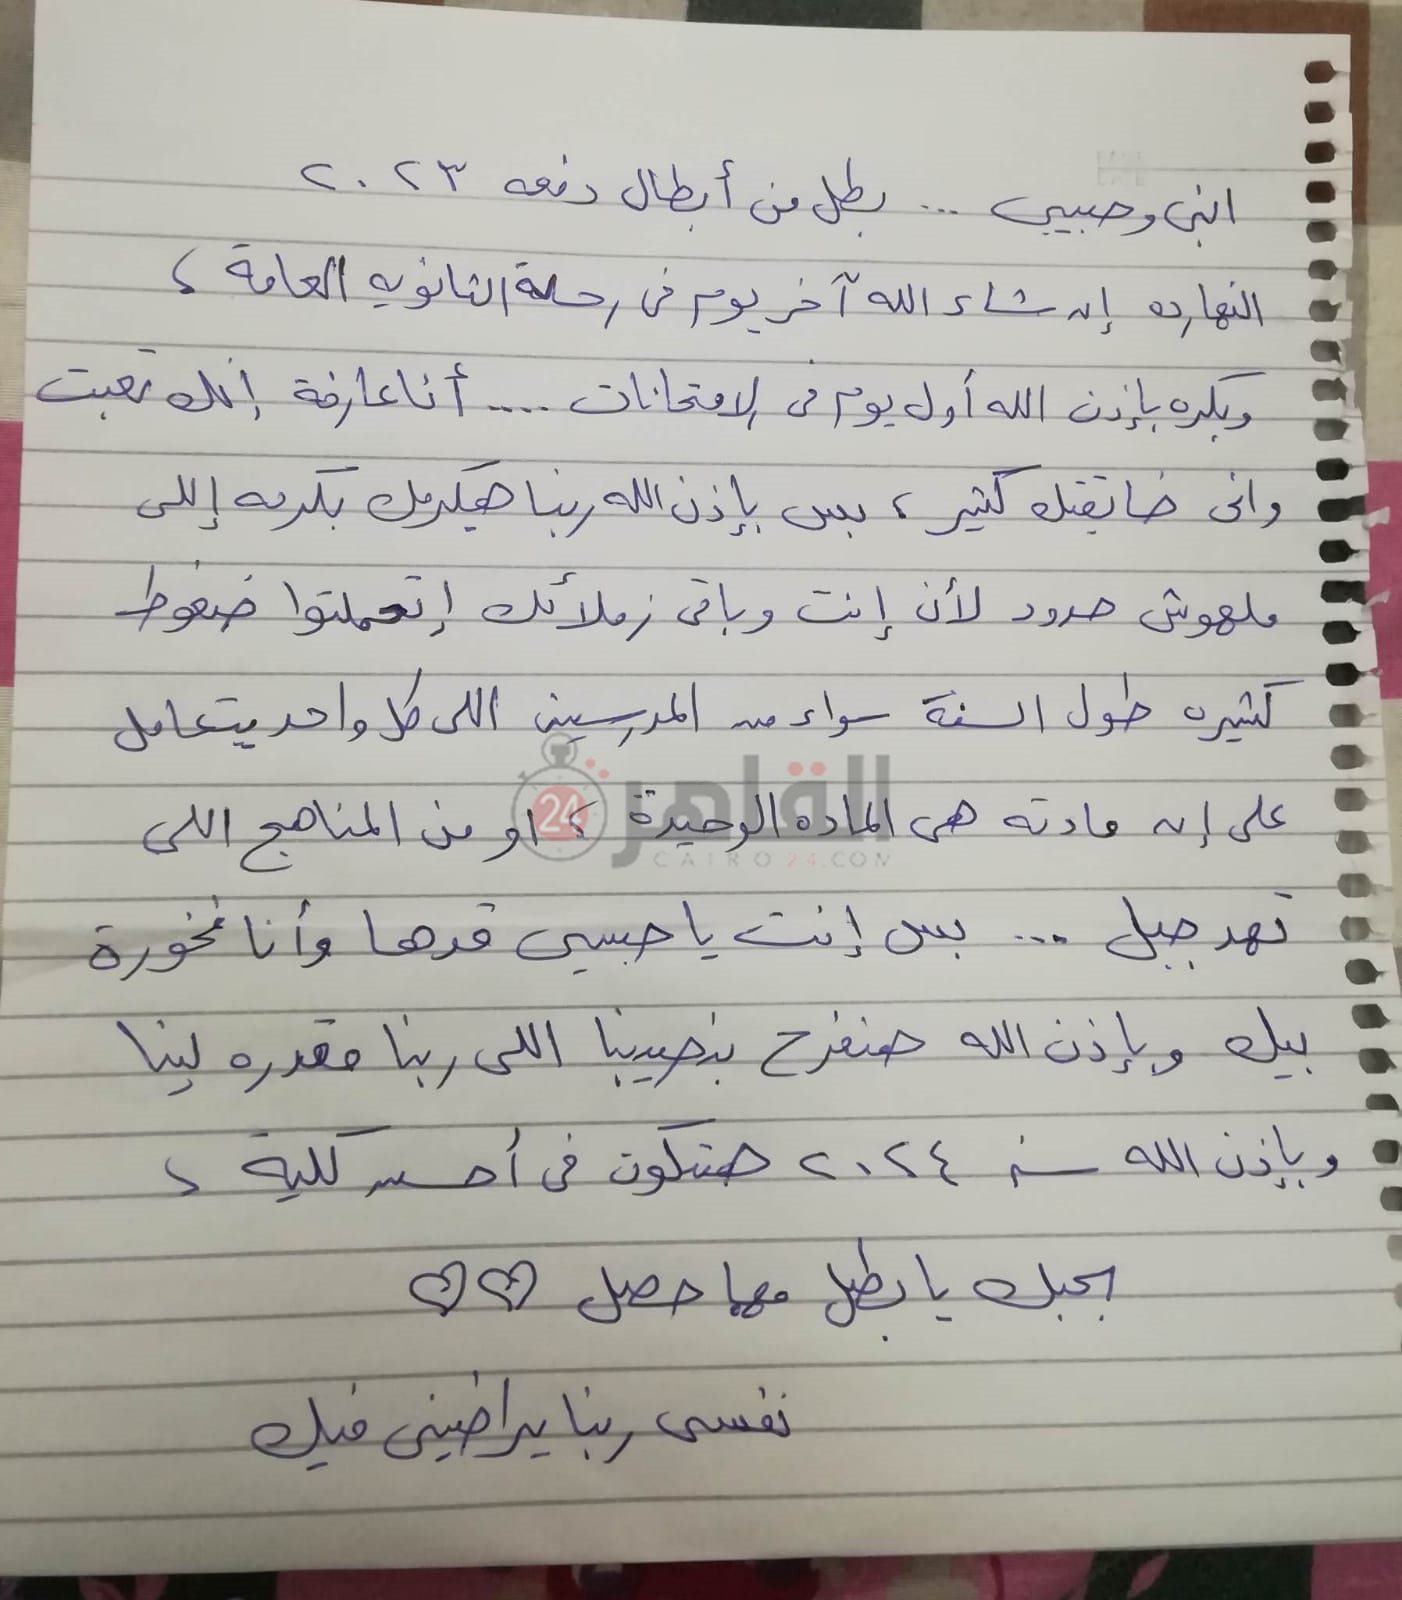 ابنى وحبيبى ... بطل من أبطال دفعه ٢٠٢٣
النهارده إن شاء الله آخر يوم فى رحلة الثانويه العامة ،
وبكره بإذن الله أول يوم فى الامتحانات .... أنا عارفة إنك تعبت
وانى ضايقتك كتير ، بس بإذن الله ربنا هيكرمك بكرمه إللى
ملهوش حدود لأن إنت وباقى زملائك إتحملتوا ضغوط
كتيره طول السنة سواء من المدرسين اللى كل واحد بيتعامل
على إن مادته هى الماده الوحيدة ، او من المناهج اللى
تهد جبل ... بس إنت يا حبيبى قدها وأنا فخورة
بيك وبإذن الله هنفرح بنصيبنا اللى ربنا مقدره لينا
وبإذن الله سنه ٢٠٢٤ هتكون فى أحسن كلية ،
بحبك يا بطل مهما حصل ♡♡
نفسى ربنا يراضينى فيك
القاهرة 24
CAIRO24.COM